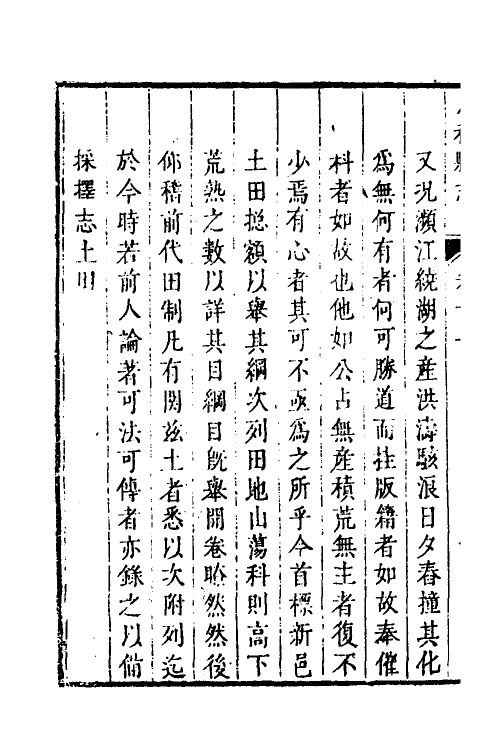 又況瀕江繞湖之産洪濤駭浪日夕舂撞其化
爲無何有者何可勝道而挂版籍者如故奉催
科者如故也他如公占無産積荒無主者復不
少焉有心者其可不亟爲之所乎今首標新邑
土田摠額以舉其綱次列田地山蕩科則高下
荒熟之數以詳其目綱目旣舉開卷瞭然然後
仰稽前代田制凡有関兹土者悉以次附列迄
於今時若前人論著可法可傳者亦錄之以俻
採擇志土田